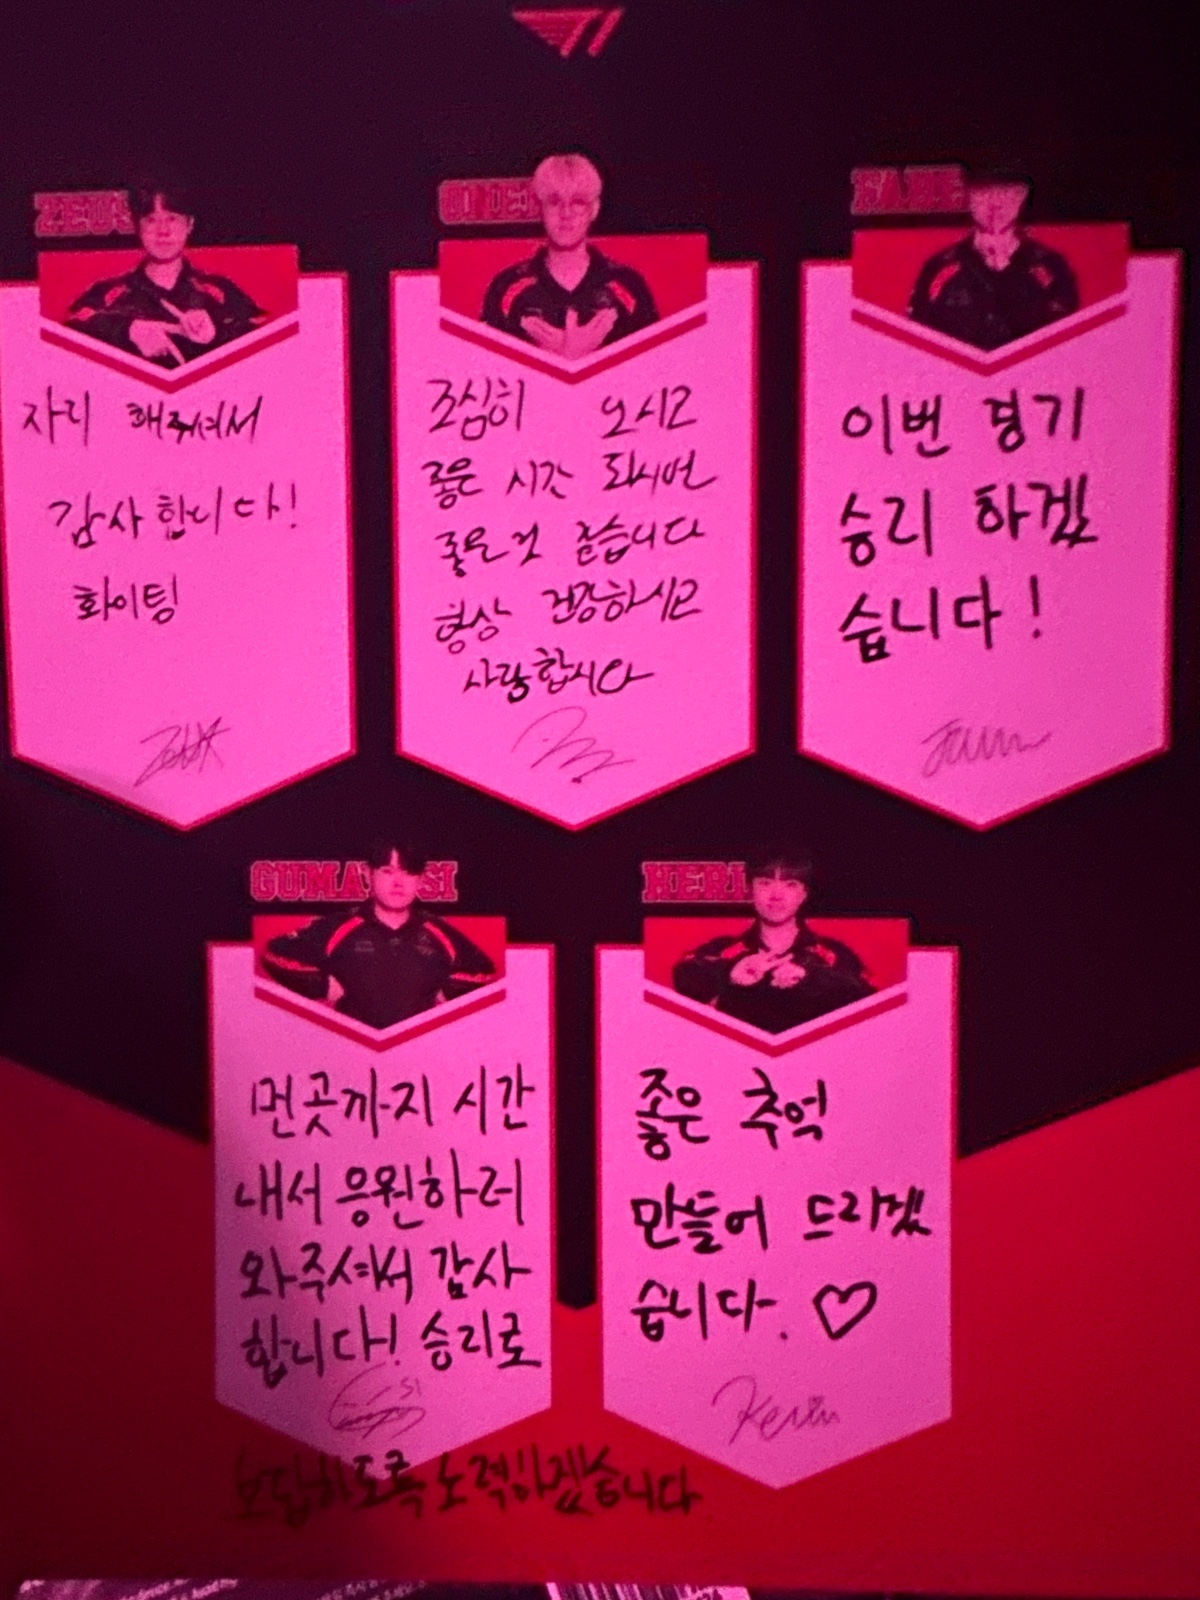 ZEUS
자리 해주셔서
감사합니다!
화이팅
조심히 오시고
좋은 시간 되시면
좋을것 같습니다
항상 건강하시고
사랑합니다
이번 경기
승리 하겠
습니다!
GUMAYUSI
먼곳까지 시간
내서 응원하러
와주셔서 감사
합니다! 승리로
보답하도록 노력하겠습니다
KERI
좋은 추억
만들어 드리겠
습니다. ♡
Keria